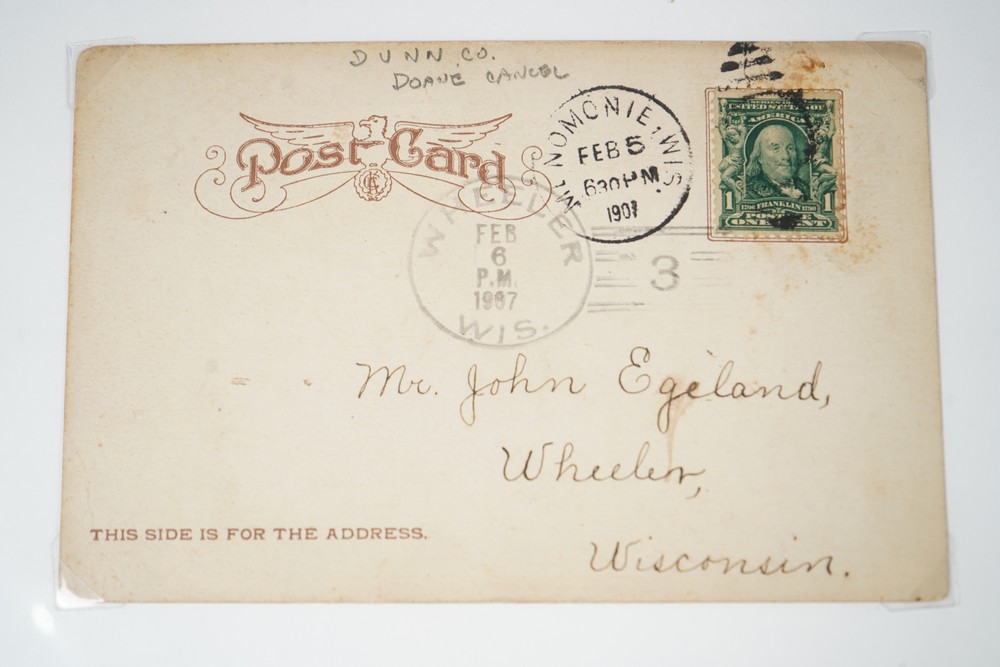 DUNN CO.
DOANE CANCEL
Post Card
MENOMONIE, WIS.
FEB 5
630 PM
1907
SERIES 1902
UNITED STATES OF
AMERICA
1 FRANKLIN 1
POSTAGE
ONE CENT
WHEELER
FEB
6
P.M.
1907
WIS.
3
Mr. John Egeland,
Wheeler,
Wisconsin.
THIS SIDE IS FOR THE ADDRESS.